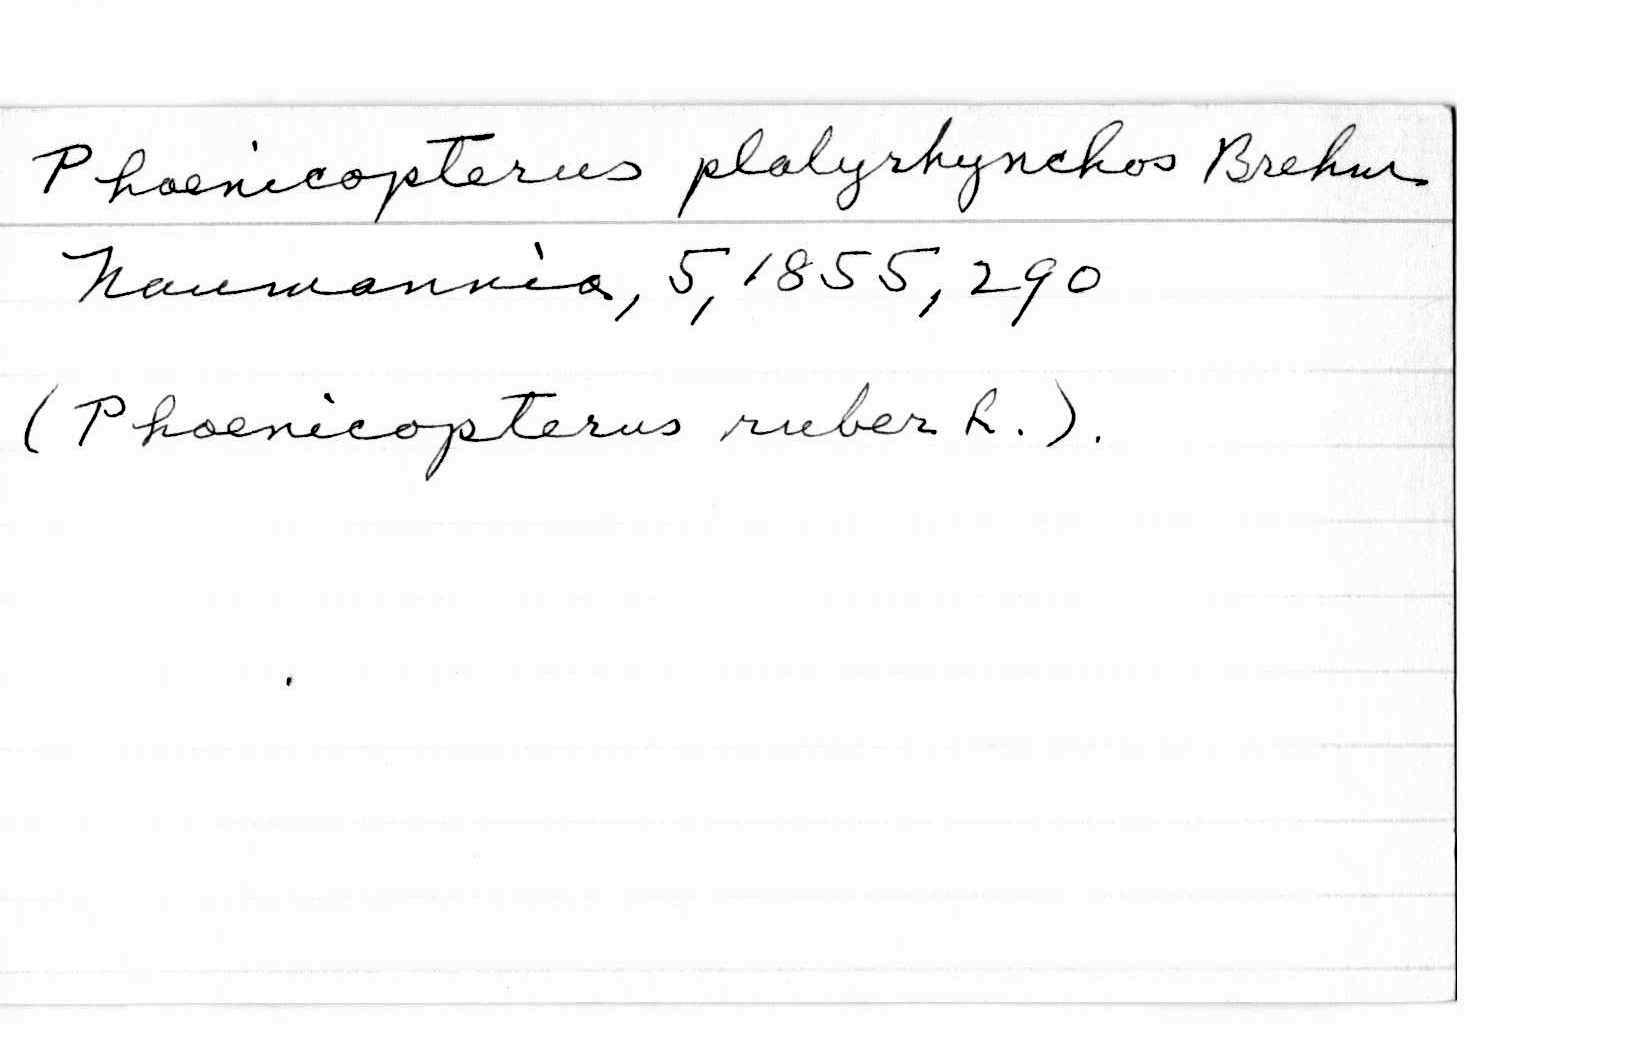 Phoenicopterus platyrhynchos Brehm
Naumannia, 5, 1855, 290
(Phoenicopterus ruber L.).